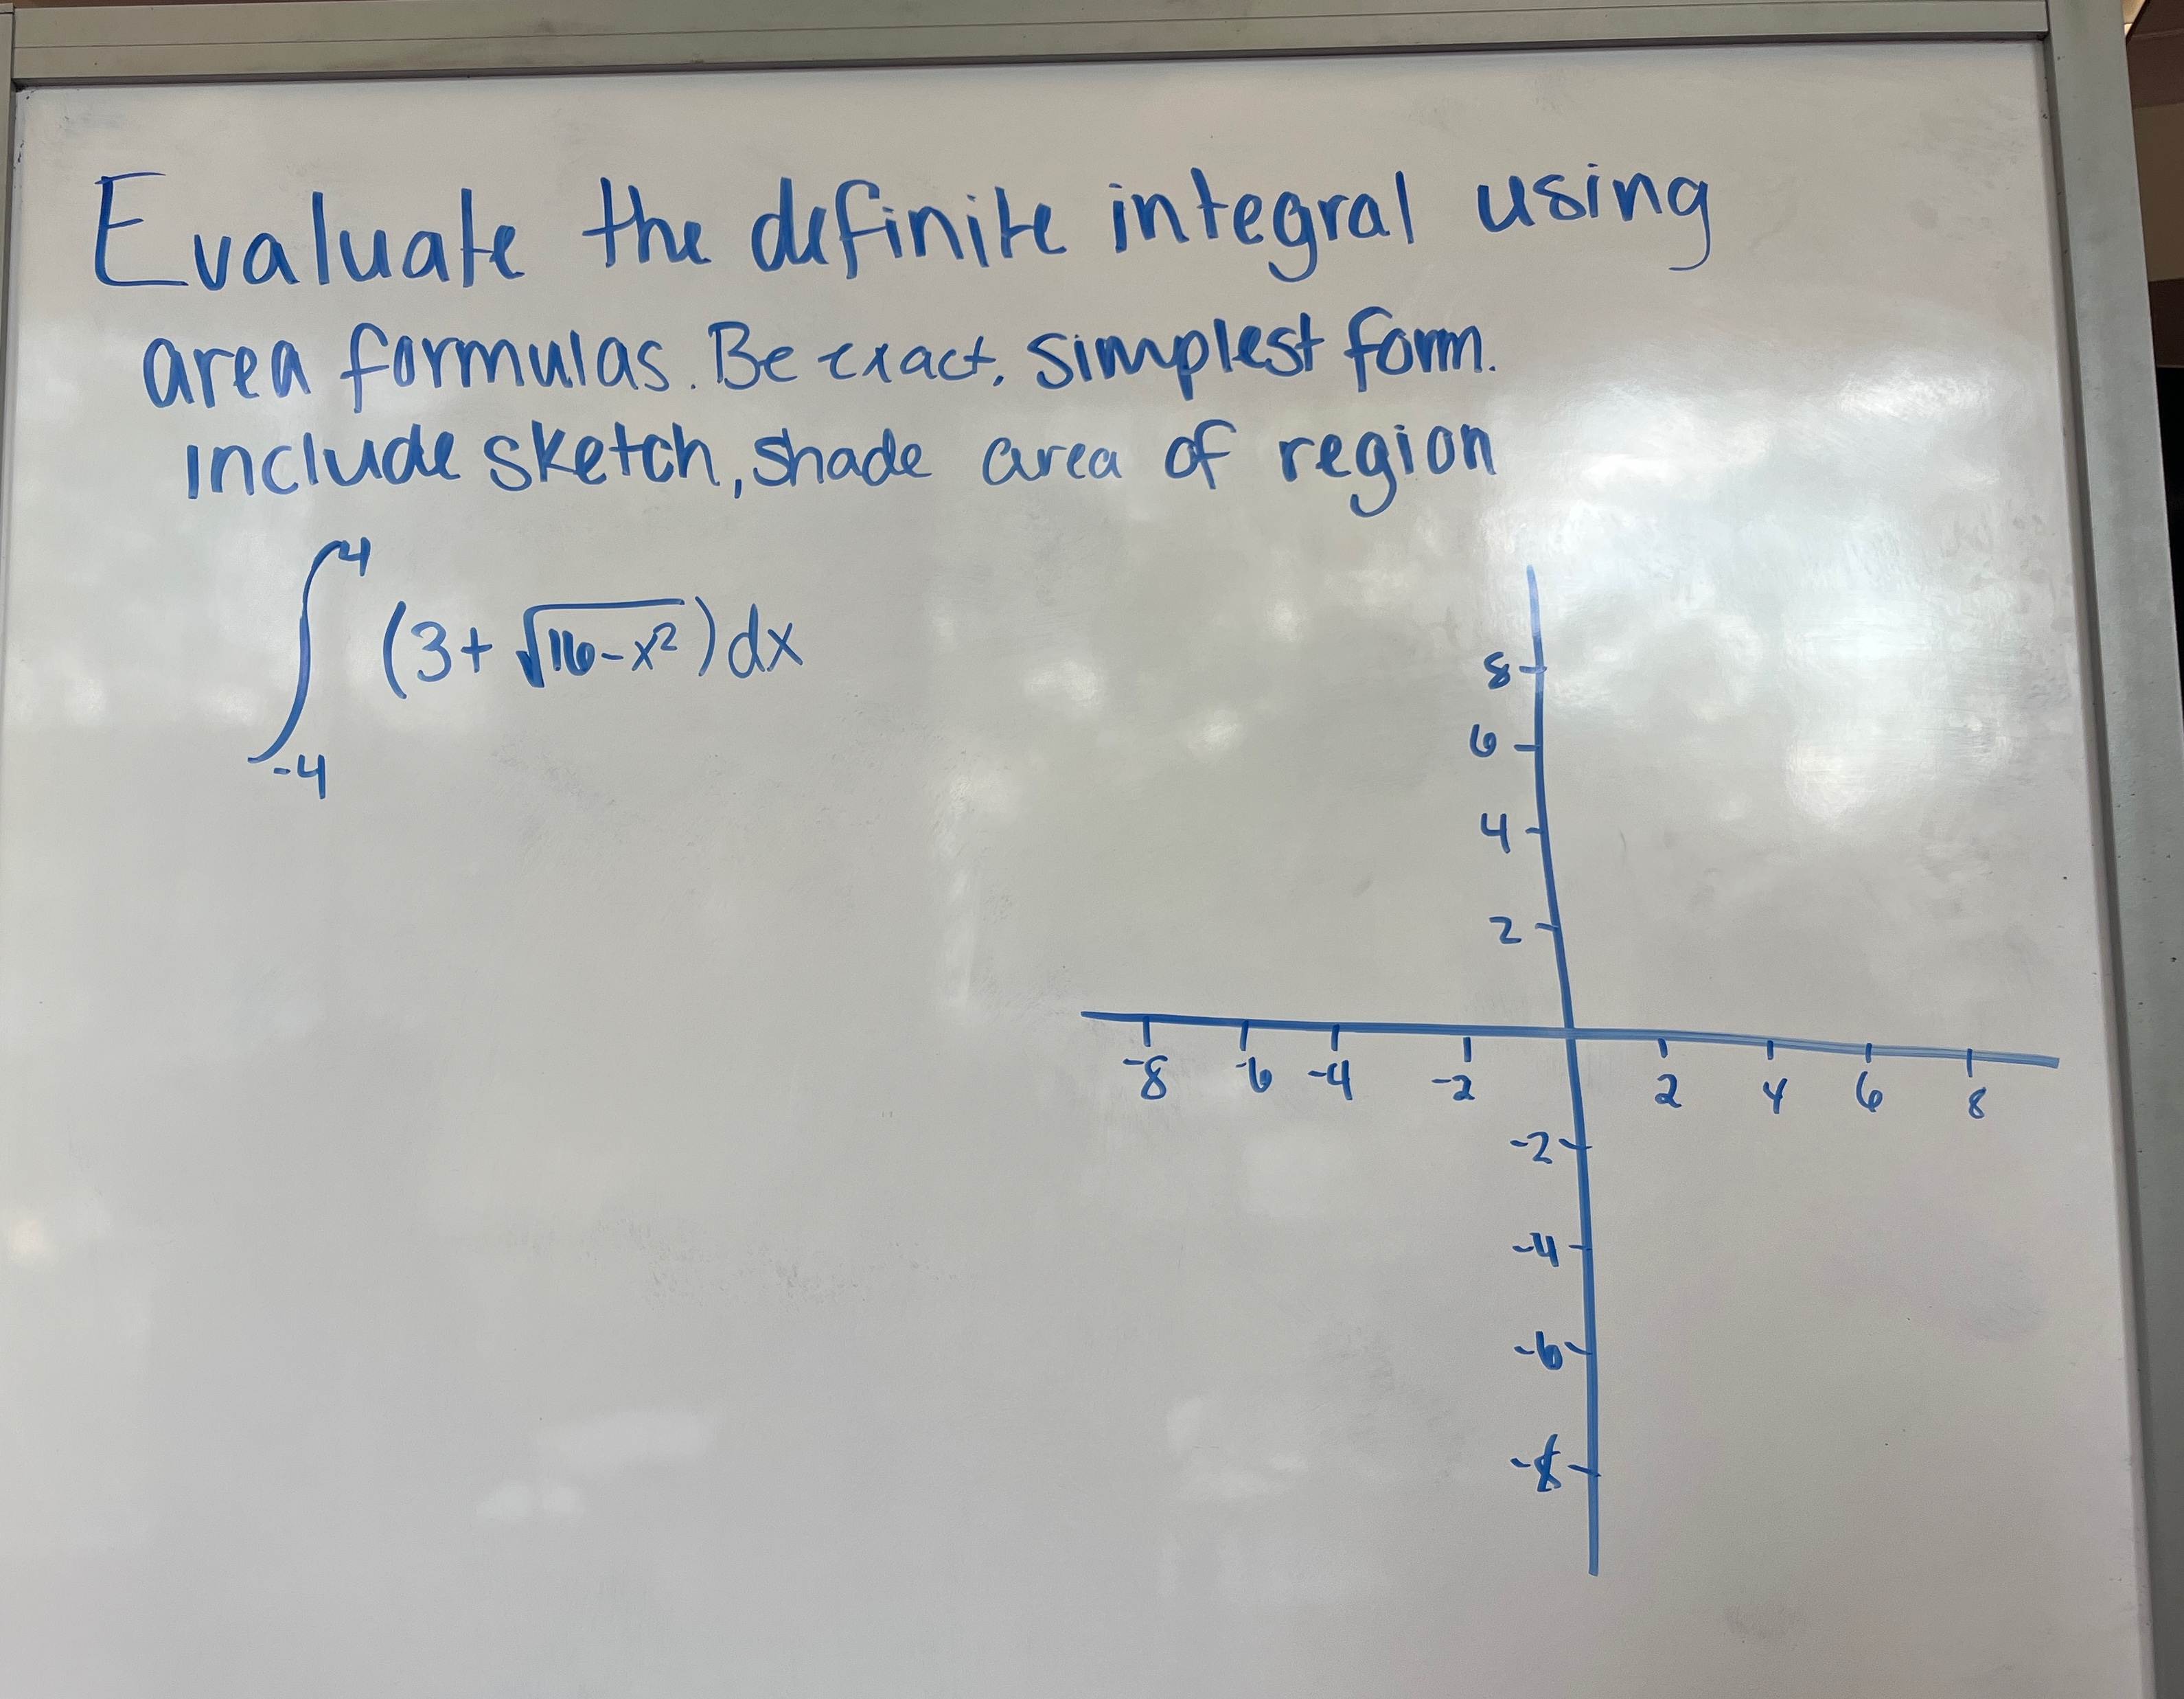 Evaluate the definite integral using
area formulas. Be exact, simplest form.
include sketch, shade area of region
∫_{-4}^{4} (3+√(16-x²))dx
8
6
4
2
-8 -6 -4 -2 2 4 6 8
-2
-4
-6
-8